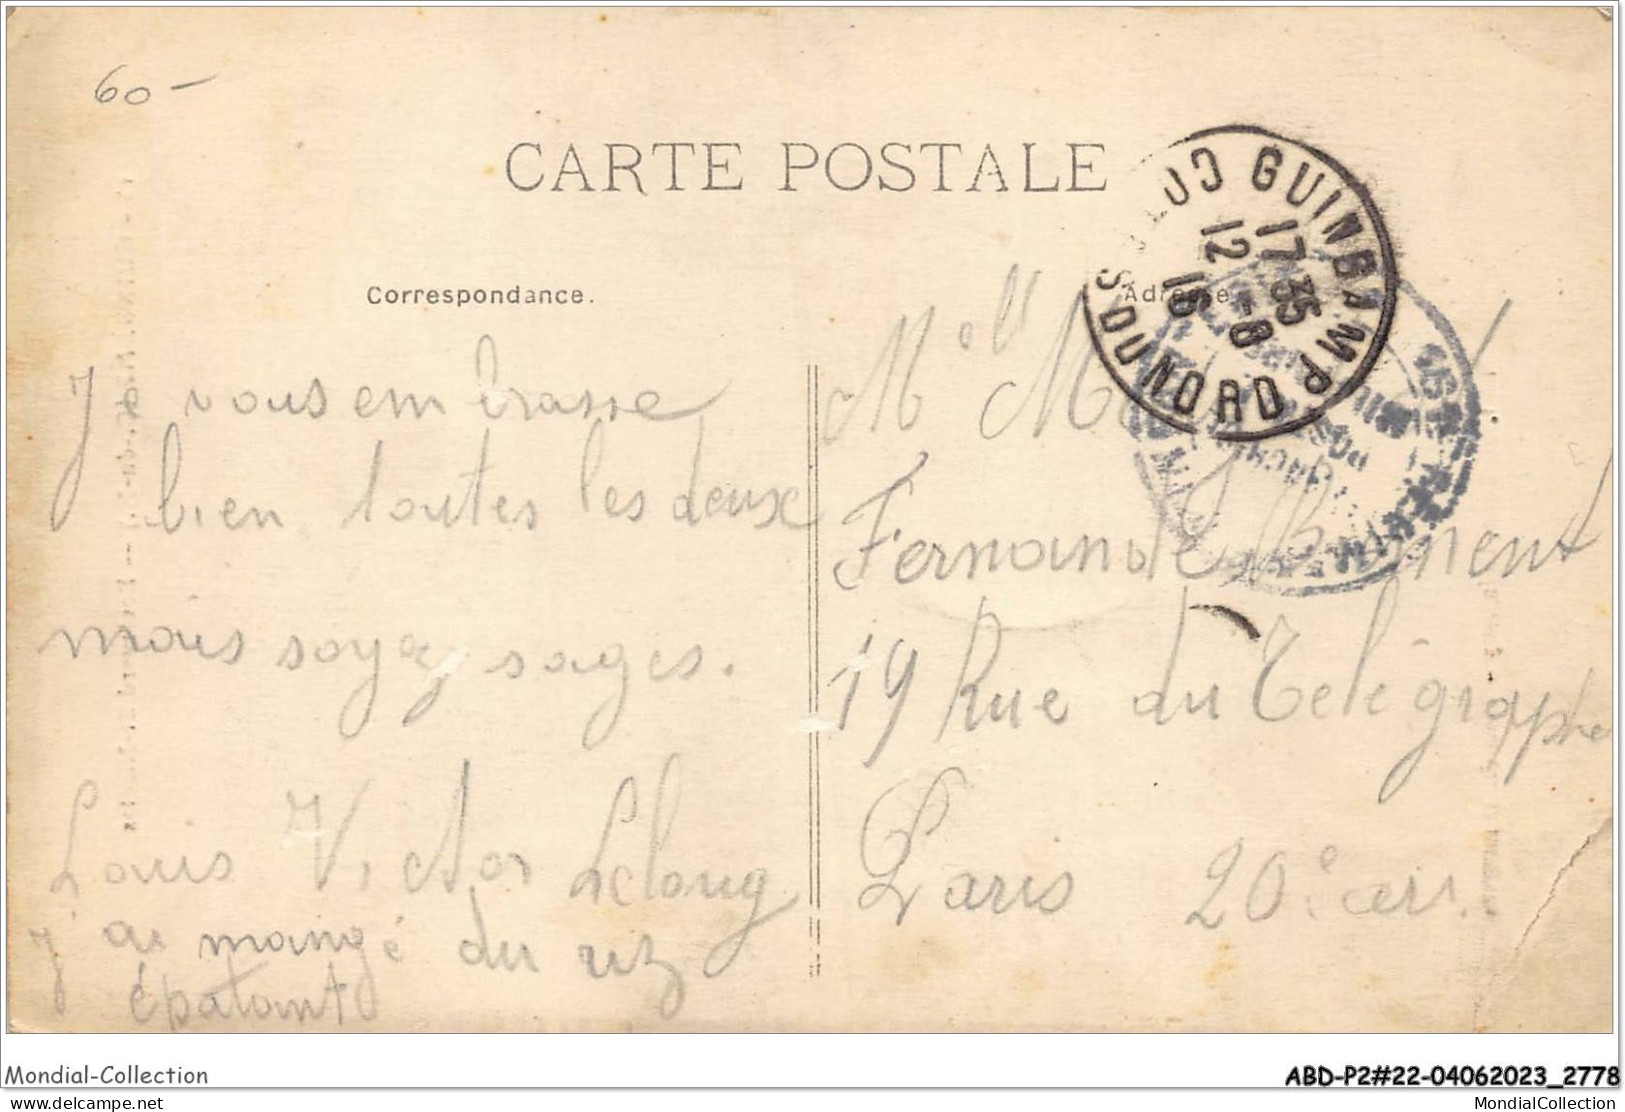 60-
CARTE POSTALE
Correspondance.
Adresse
GUINGAMP
CÔTES DU NORD
17 35
12 -8
16
Je vous embrasse
bien toutes les deux
mais soyez sages.
Louis Victor Lelong
J'ai mangé du riz
épatant
Melle M
Fernande
19 Rue du Télégraphe
Paris 20e arr.
Mondial-Collection
ABD-P2#22-04062023_2778
delcampe.net
MondialCollection